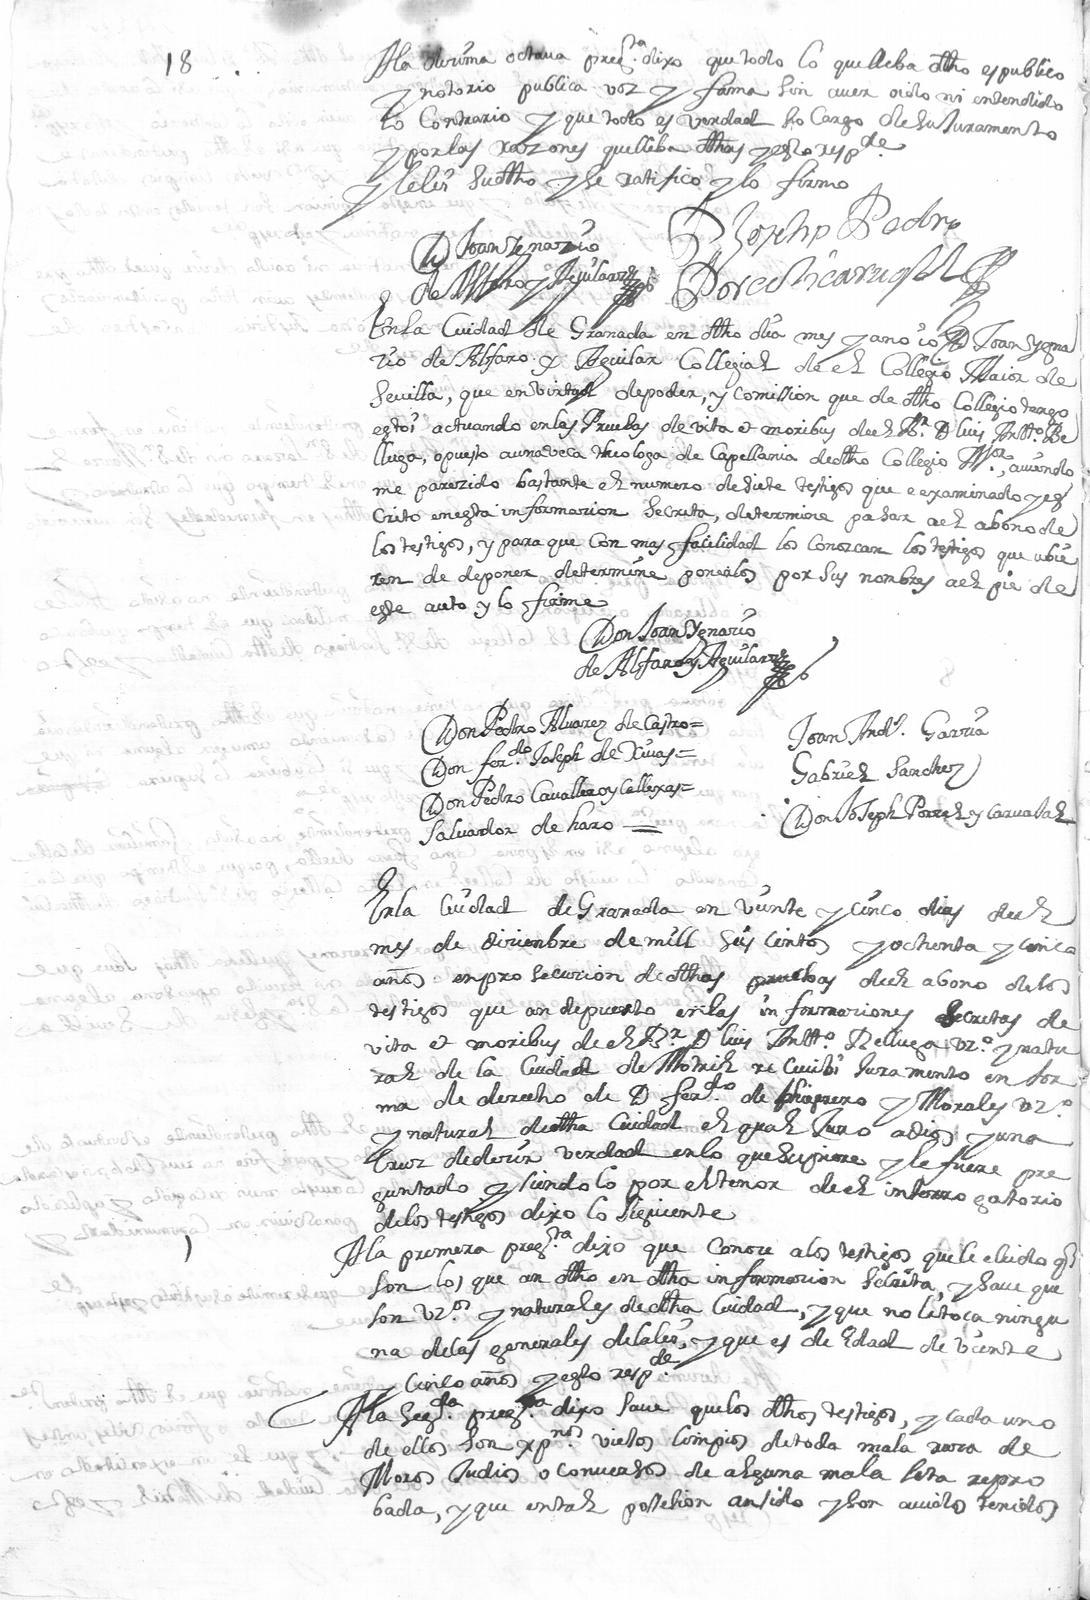 18
Ala deçima octaua preg.ta dixo que todo lo que lleba dho es publico
y notorio publica voz y fama sin auer oido ni entendido
lo Contrario y que todo es verdad so Cargo de su Juramento
y por las razones que lleba dthas y esto resp.de
y leley su dtho y se ratifico y lo firmo
D Joan Ygnazio
de Alfaro y Aguilar
D Joseph Pedro
Porcel i Carauajal
En la Ciudad de Granada en dtho dia mes y ano io D Joan Ygna
cio de Alfaro y Aguilar Collegial de el Collegio Maior de
Seuilla, que en virtud de poder, y comission que de dtho Collegio tengo
estoi actuando en las Pruebas de vita et moribus de el Sr. D Luis Antto. Be
lluga, opuesto a una veca theologa de Capellania de dtho Collegio M.or, auiendo
me parezido bastante el numero de siete testigos que e examinado y es
crito en esta informacion Secreta, determine pasar a el abono de
los testigos, y para que con mas facilidad los conozcan los testigos que ubie
ren de deponer determine ponerlos por sus nombres a el pie de
este auto y lo firme
Don Joan Ygnacio
de Alfaro y Aguilar
Don Pedro Aluarez de Castro=
Don fer.do Joseph de =
Don Pedro Cauallero y Callexas=
Saluador de haro =
Joan And.s Garzia
Gabriel Sanchez
Don Joseph Porcel y Carauajal
En la Ciudad de Granada en veinte y cinco dias de el
mes de diciembre de mill seis cientos y ochenta y cinco
años en prosecucion de dthas pruebas de el abono de los
testigos que an depuesto en las informaciones Secretas de
vita et moribus de el Sr. D Luis Antto. Belluga vz.o y natu
ral de la Ciudad de Motril reciui Juramento en for
ma de derecho de D fer.do de y Morales vz.o
y natural de dtha Ciudad el qual Juro a dios y una
Cruz de decir verdad en lo que supiere y le fuere pre
guntado y siendolo por el tenor de el interrogatorio
de los testigos dixo lo siguiente
1
Ala primera preg.ta dixo que conoce a los testigos que le e leido q
son los que an dtho en dtha informacion secreta, y saue que
son vz.os y naturales de dtha Ciudad, y que no le toca ningu
na de las generales de la ley, y que es de edad de veinte
y cinco años y esto resp.de
Ala seg.da preg.ta dixo saue que los dthos testigos, y cada uno
de ellos son xpnos viejos limpios de toda mala raza de
Moros Judios o conuersos de alguna mala seta repro
bada, y que en tal posession an sido y son auidos tenidos